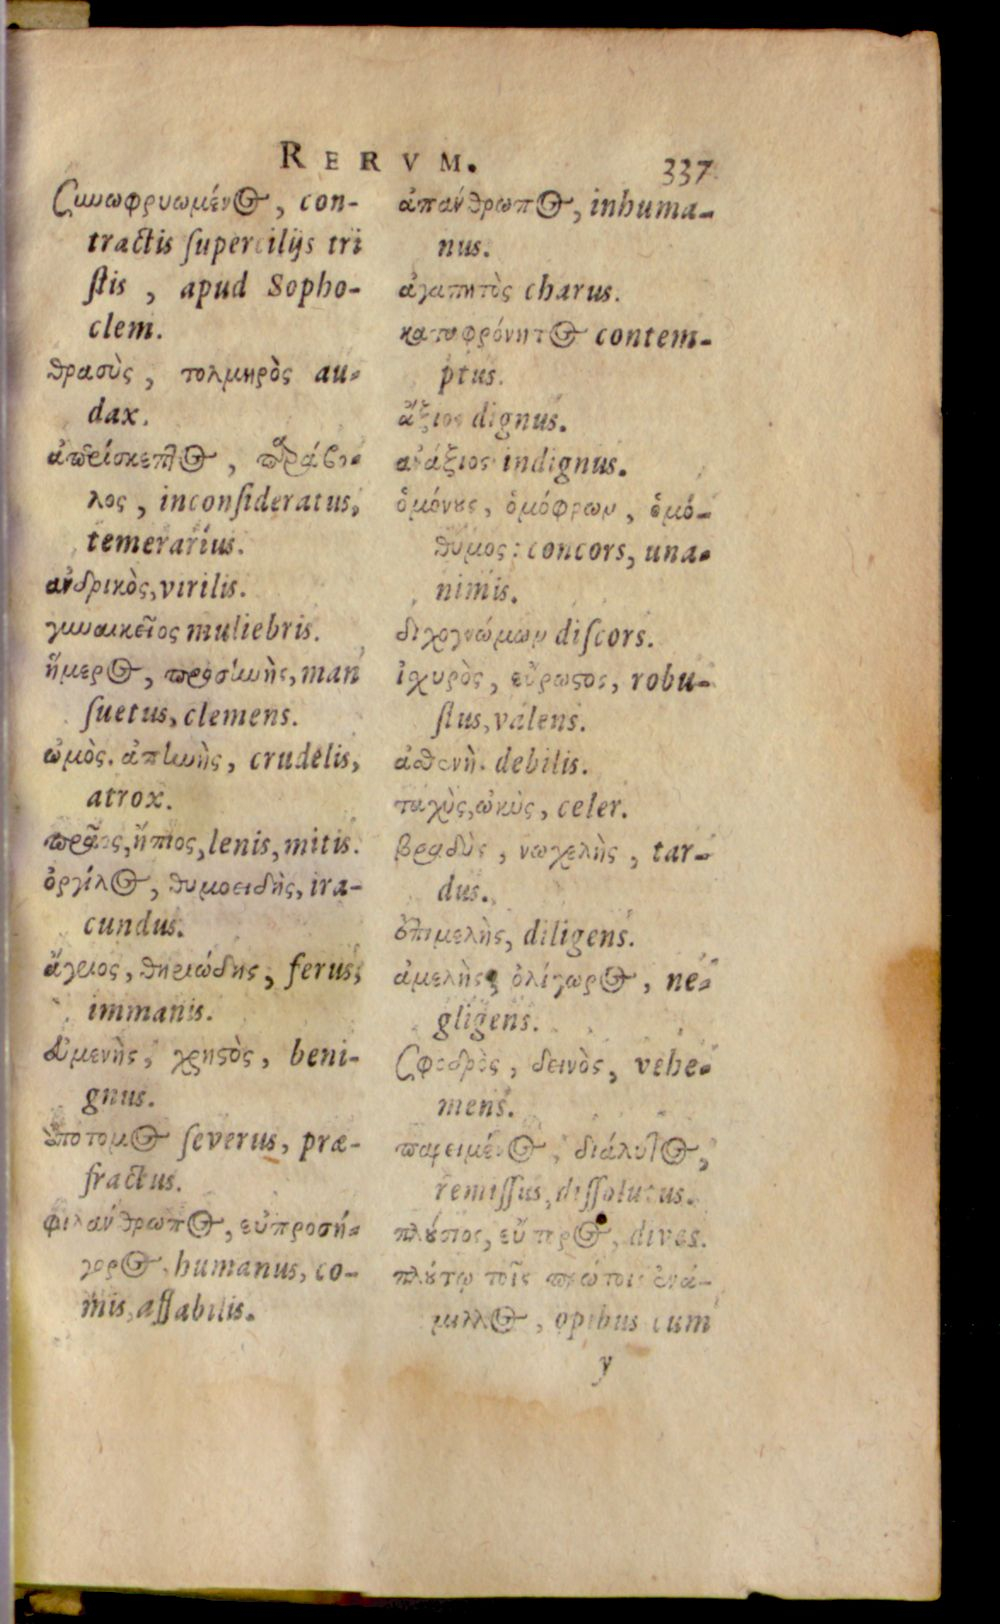 RERVM. 337
Συνωφρυωμένος, con-
tractis ſupercilijs tri
ſtis, apud Sopho-
clem.
θρασὺς, τολμηρὸς au-
dax.
ἀπερίσκεπτος, παράβο-
λος, inconſideratus,
temerarius.
ανδρικὸς, virilis.
γυναικεῖος muliebris.
ἥμερος, προσηνὴς, man
ſuetus, clemens.
ὠμὸς. ἀπηνὴς, crudelis,
atrox.
πρᾶος, ἤπιος, lenis, mitis.
ὀργίλος, θυμοειδὴς, ira-
cundus.
ἄγριος, θηριώδης, ferus,
immanis.
εὐμενὴς, χρηστὸς, beni-
gnus.
ἀπότομος ſeverus, præ-
fractus.
φιλάνθρωπος, εὐπροσή-
γορος, humanus, co-
mis, affabilis.
ἀπάνθρωπος, inhuma-
nus.
ἀγαπητὸς charus.
καταφρόνητος contem-
ptus.
ἄξιος dignus.
ανάξιος indignus.
ὁμόνους, ὁμόφρων, ὁμό-
θυμος: concors, una-
nimis.
διχογνώμων diſcors.
ἰχυρὸς, εὔρωστος, robu-
ſtus, valens.
ἀσθενὴς debilis.
ταχὺς, ὠκὺς, celer.
βραδὺς, νωχελὴς, tar-
dus.
ἐπιμελὴς, diligens.
ἀμελὴς, ὀλίγωρος, ne-
gligens.
Σφοδρὸς, δεινὸς, vehe-
mens.
παρειμένος, διάλυτος,
remiſſus, diſſolutus.
πλούσιος, εὔπορος, dives.
πλούτῳ τοῖς πρώτοις ἐνά-
μιλλος, opibus cum
y